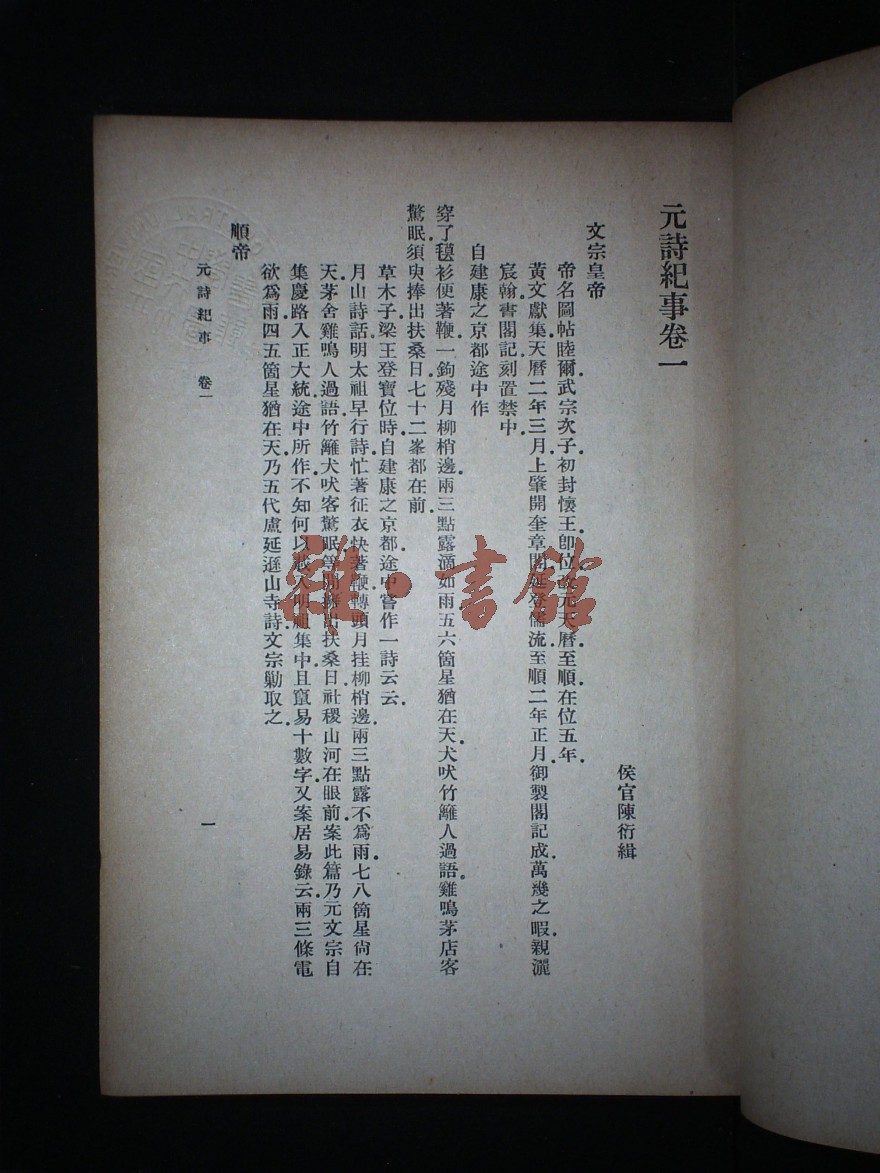 元詩紀事卷一
侯官陳衍緝
文宗皇帝
帝名圖帖睦爾武宗次子初封懷王卽位改元天曆至順在位五年
黃文獻集天曆二年三月上肇開奎章閣延登儒流至順二年正月御製閣記成萬幾之暇親灑
宸翰書閣記刻置禁中
自建康之京都途中作
穿了氊衫便著鞭一鉤殘月柳梢邊兩三點露滴如雨五六箇星猶在天犬吠竹籬人過語雞鳴茅店客
驚眠須臾捧出扶桑日七十二峯都在前
草木子梁王登寶位時自建康之京都途中嘗作一詩云云
月山詩話明太祖早行詩忙著征衣快著鞭轉頭月挂柳梢邊兩三點露不爲雨七八箇星尙在
天茅舍雞鳴人過語竹籬犬吠客驚眠等閒擁出扶桑日社稷山河在眼前案此篇乃元文宗自
集慶路入正大統途中所作不知何以載入明祖集中且竄易十數字又案居易錄云兩三條電
欲爲雨四五箇星猶在天乃五代盧延遜山寺詩文宗勦取之
順帝
元詩紀事 卷一
一
雜·書館